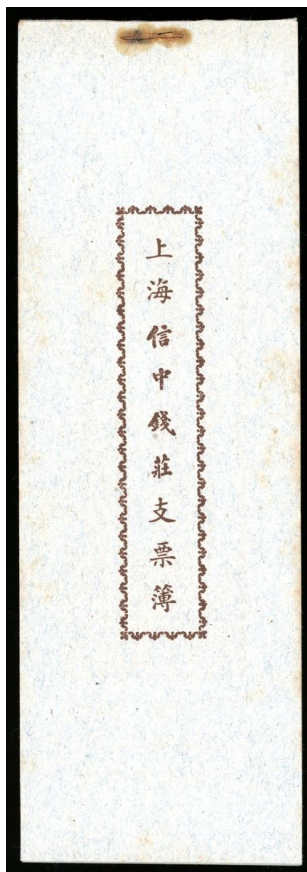 上海信中錢莊支票簿